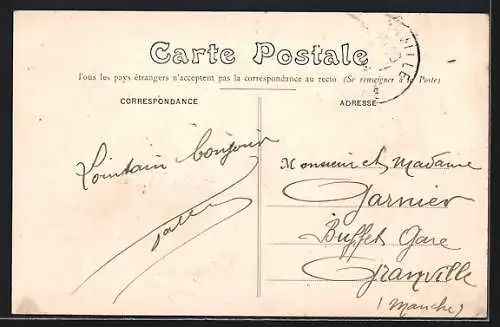 Carte Postale
Tous les pays étrangers n'acceptent pas la correspondance au recto (Se renseigner à la Poste)
CORRESPONDANCE
ADRESSE
Lointain bonjour
Monsieur et Madame
Garnier
Buffet Gare
Granville
(Manche)